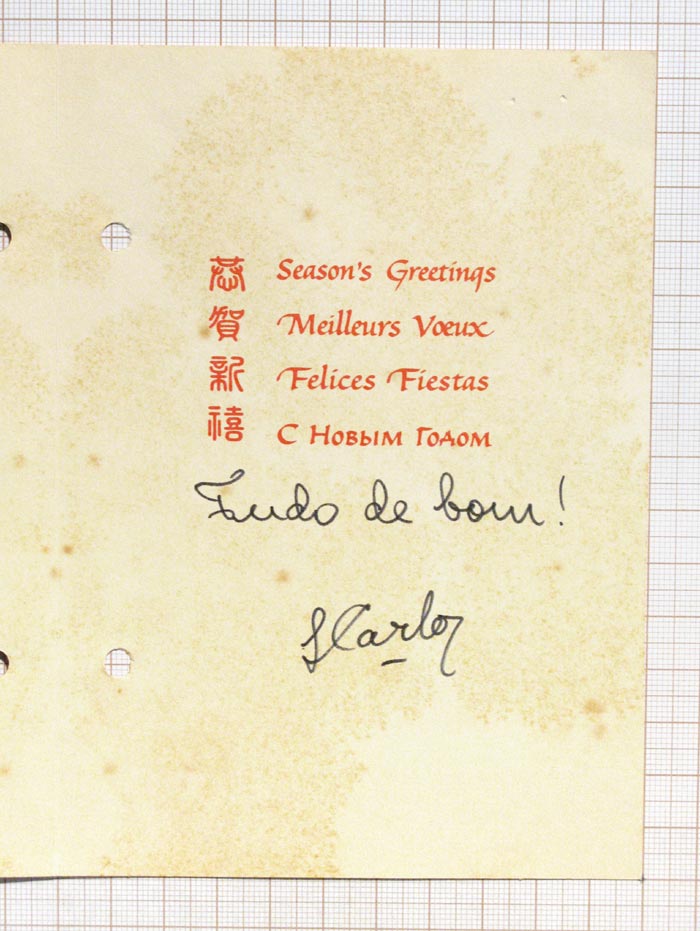 恭賀新禧
Season's Greetings
Meilleurs Vœux
Felices Fiestas
С Новым Годом
Tudo de bom!
Carlos